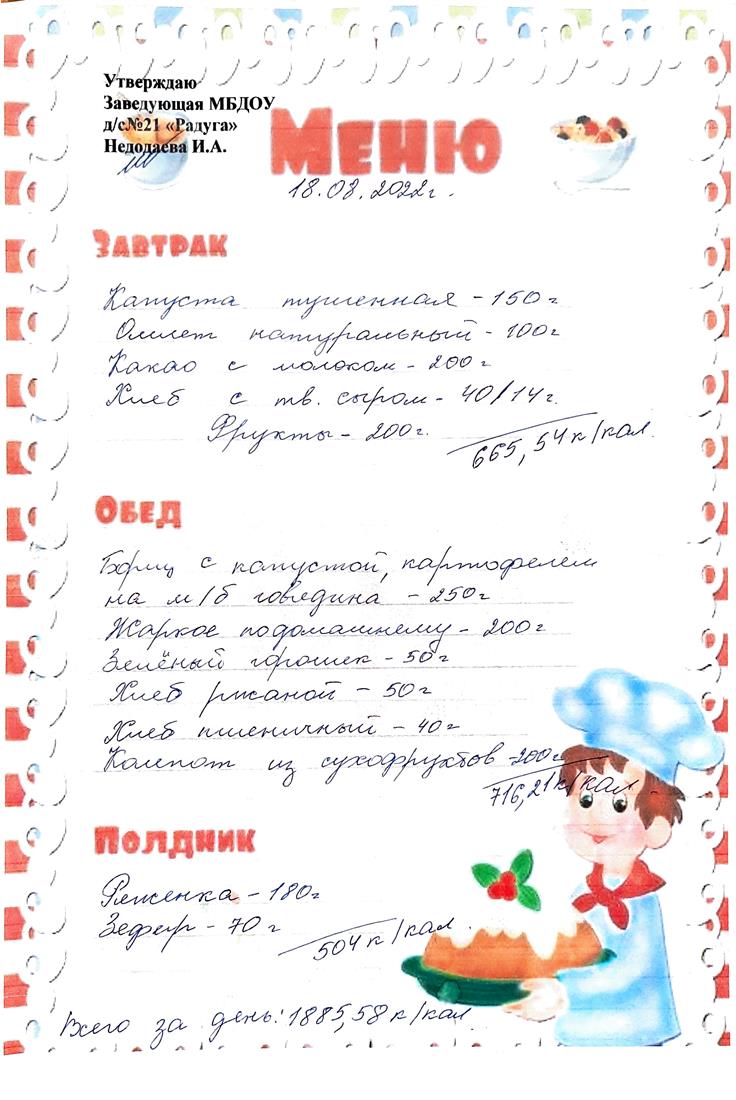 Утверждаю
Заведующая МБДОУ
д/с№21 «Радуга»
Недодаева И.А.
Меню
18.08.2022г.
Завтрак
Капуста тушенная - 150г
Омлет натуральный - 100г
Какао с молоком - 200г
Хлеб с тв. сыром - 40/14г.
Фрукты - 200г.
665,54к/кал.
Обед
Борщ с капустой, картофелем
на м/б говядина - 250г
Жаркое подомашнему - 200г
Зелёный горошек - 50г
Хлеб ржаной - 50г
Хлеб пшеничный - 40г
Компот из сухофруктов 200г
716,21к/кал.
Полдник
Ряженка - 180г
Зефир - 70г
504к/кал.
Всего за день: 1885,58 к/кал.